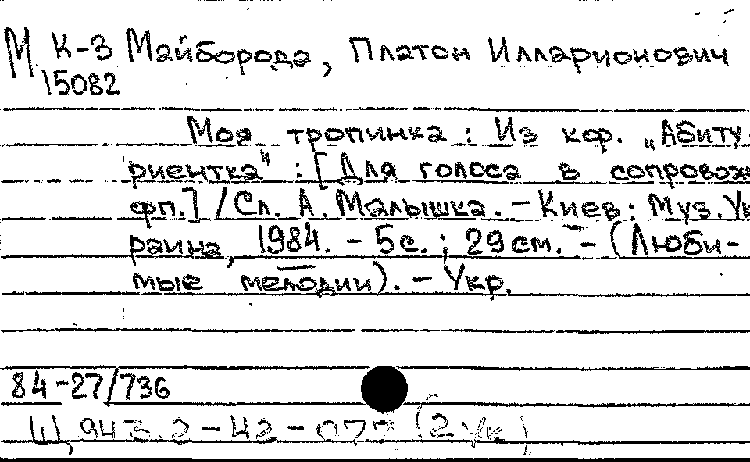 М К-3 Майборода, Платон Илларионович
15082
Моя тропинка : Из кф. „Абиту
риентка" : [Для голоса в сопровож
фп.] / Сл. А. Малышка. – Киев : Муз. Ук
раина, 1984. – 5 с. ; 29 см. – (Люби-
мые мелодии). – Укр.
84-27/736
Щ 943.2-42-077 (2Ук)